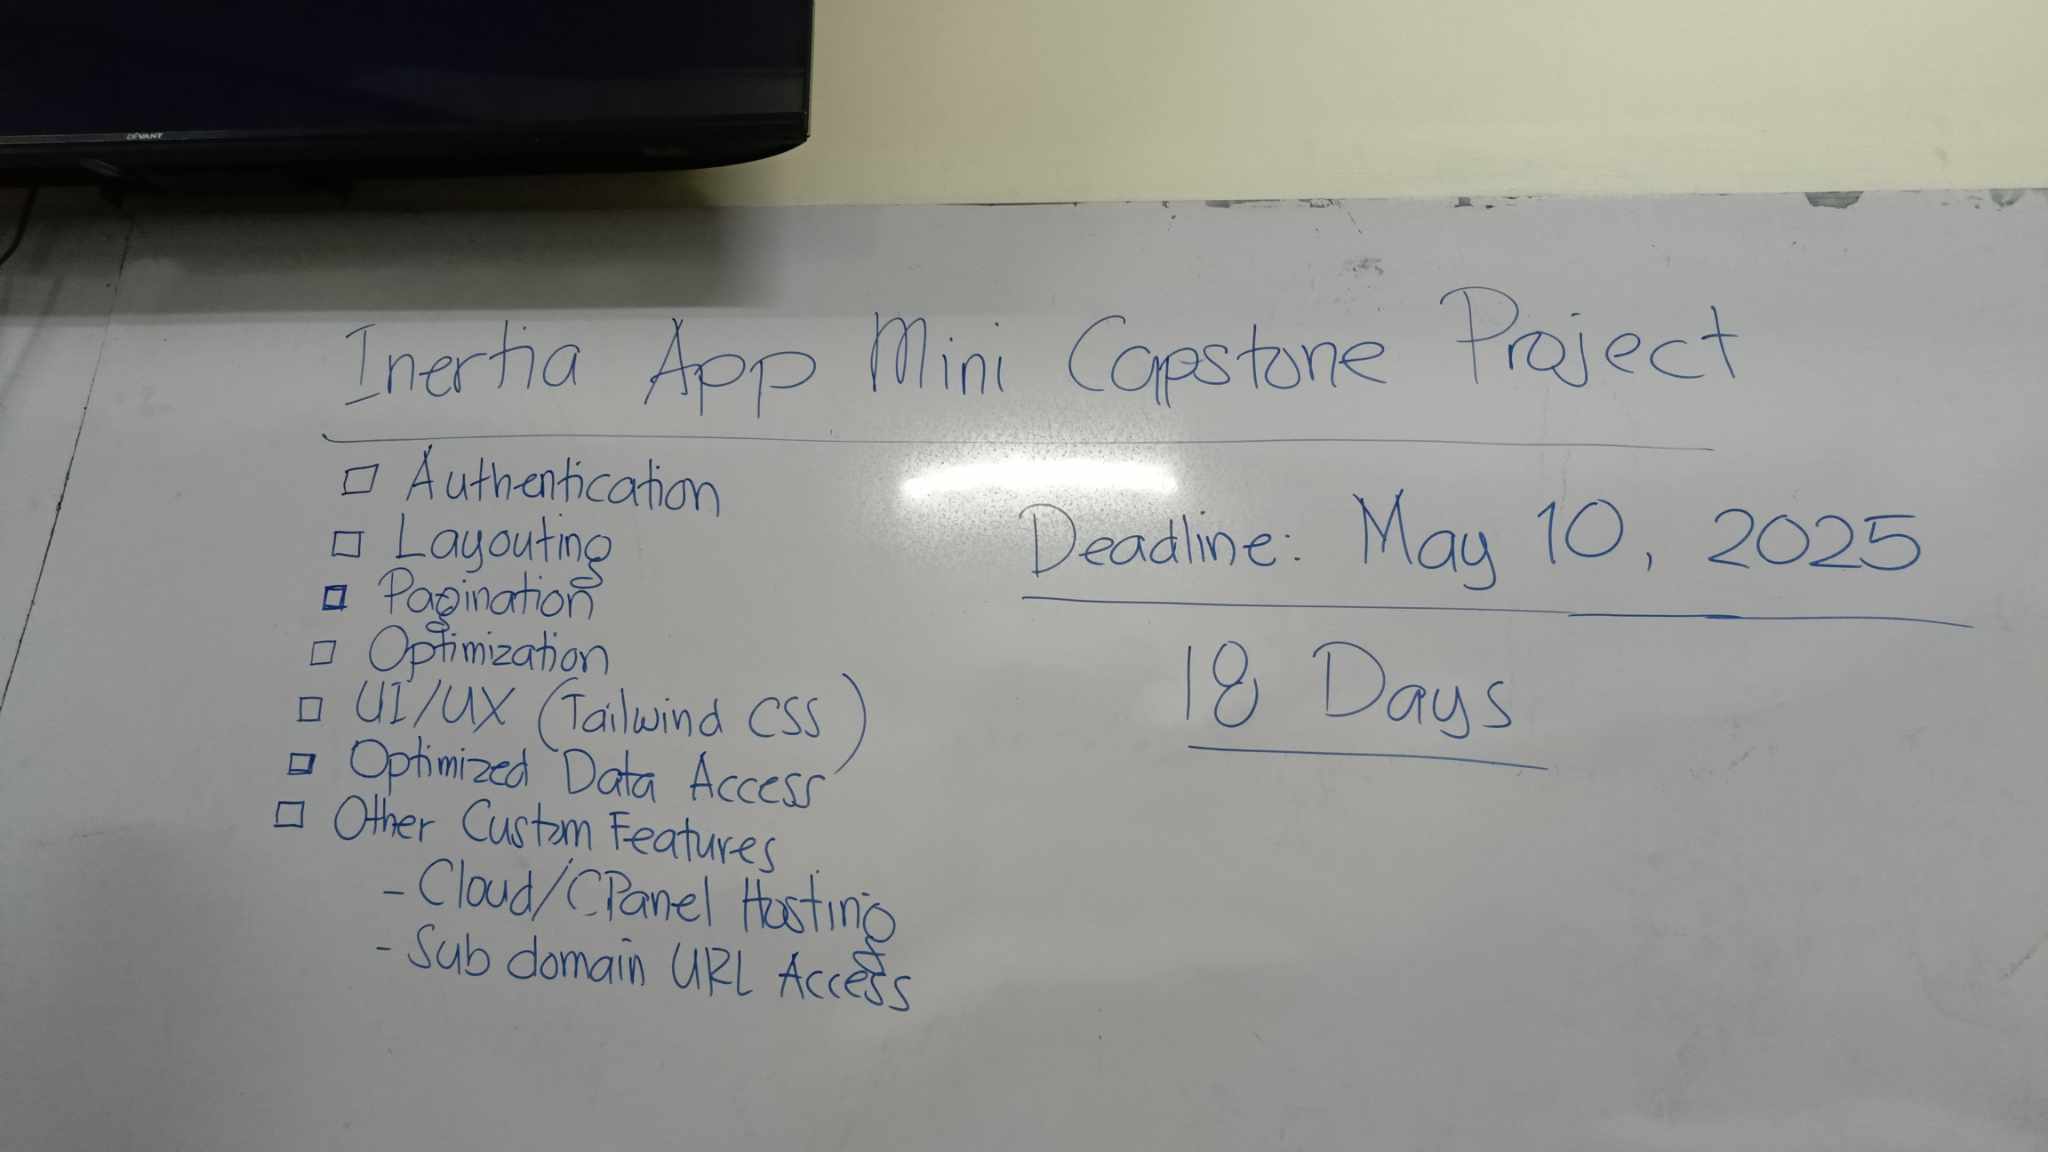 DEVANT
Inertia App Mini Capstone Project
Authentication
Layouting
Pagination
Optimization
UI/UX (Tailwind CSS)
Optimized Data Access
Other Custom Features
- Cloud/CPanel Hosting
- Sub domain URL Access
Deadline: May 10, 2025
18 Days